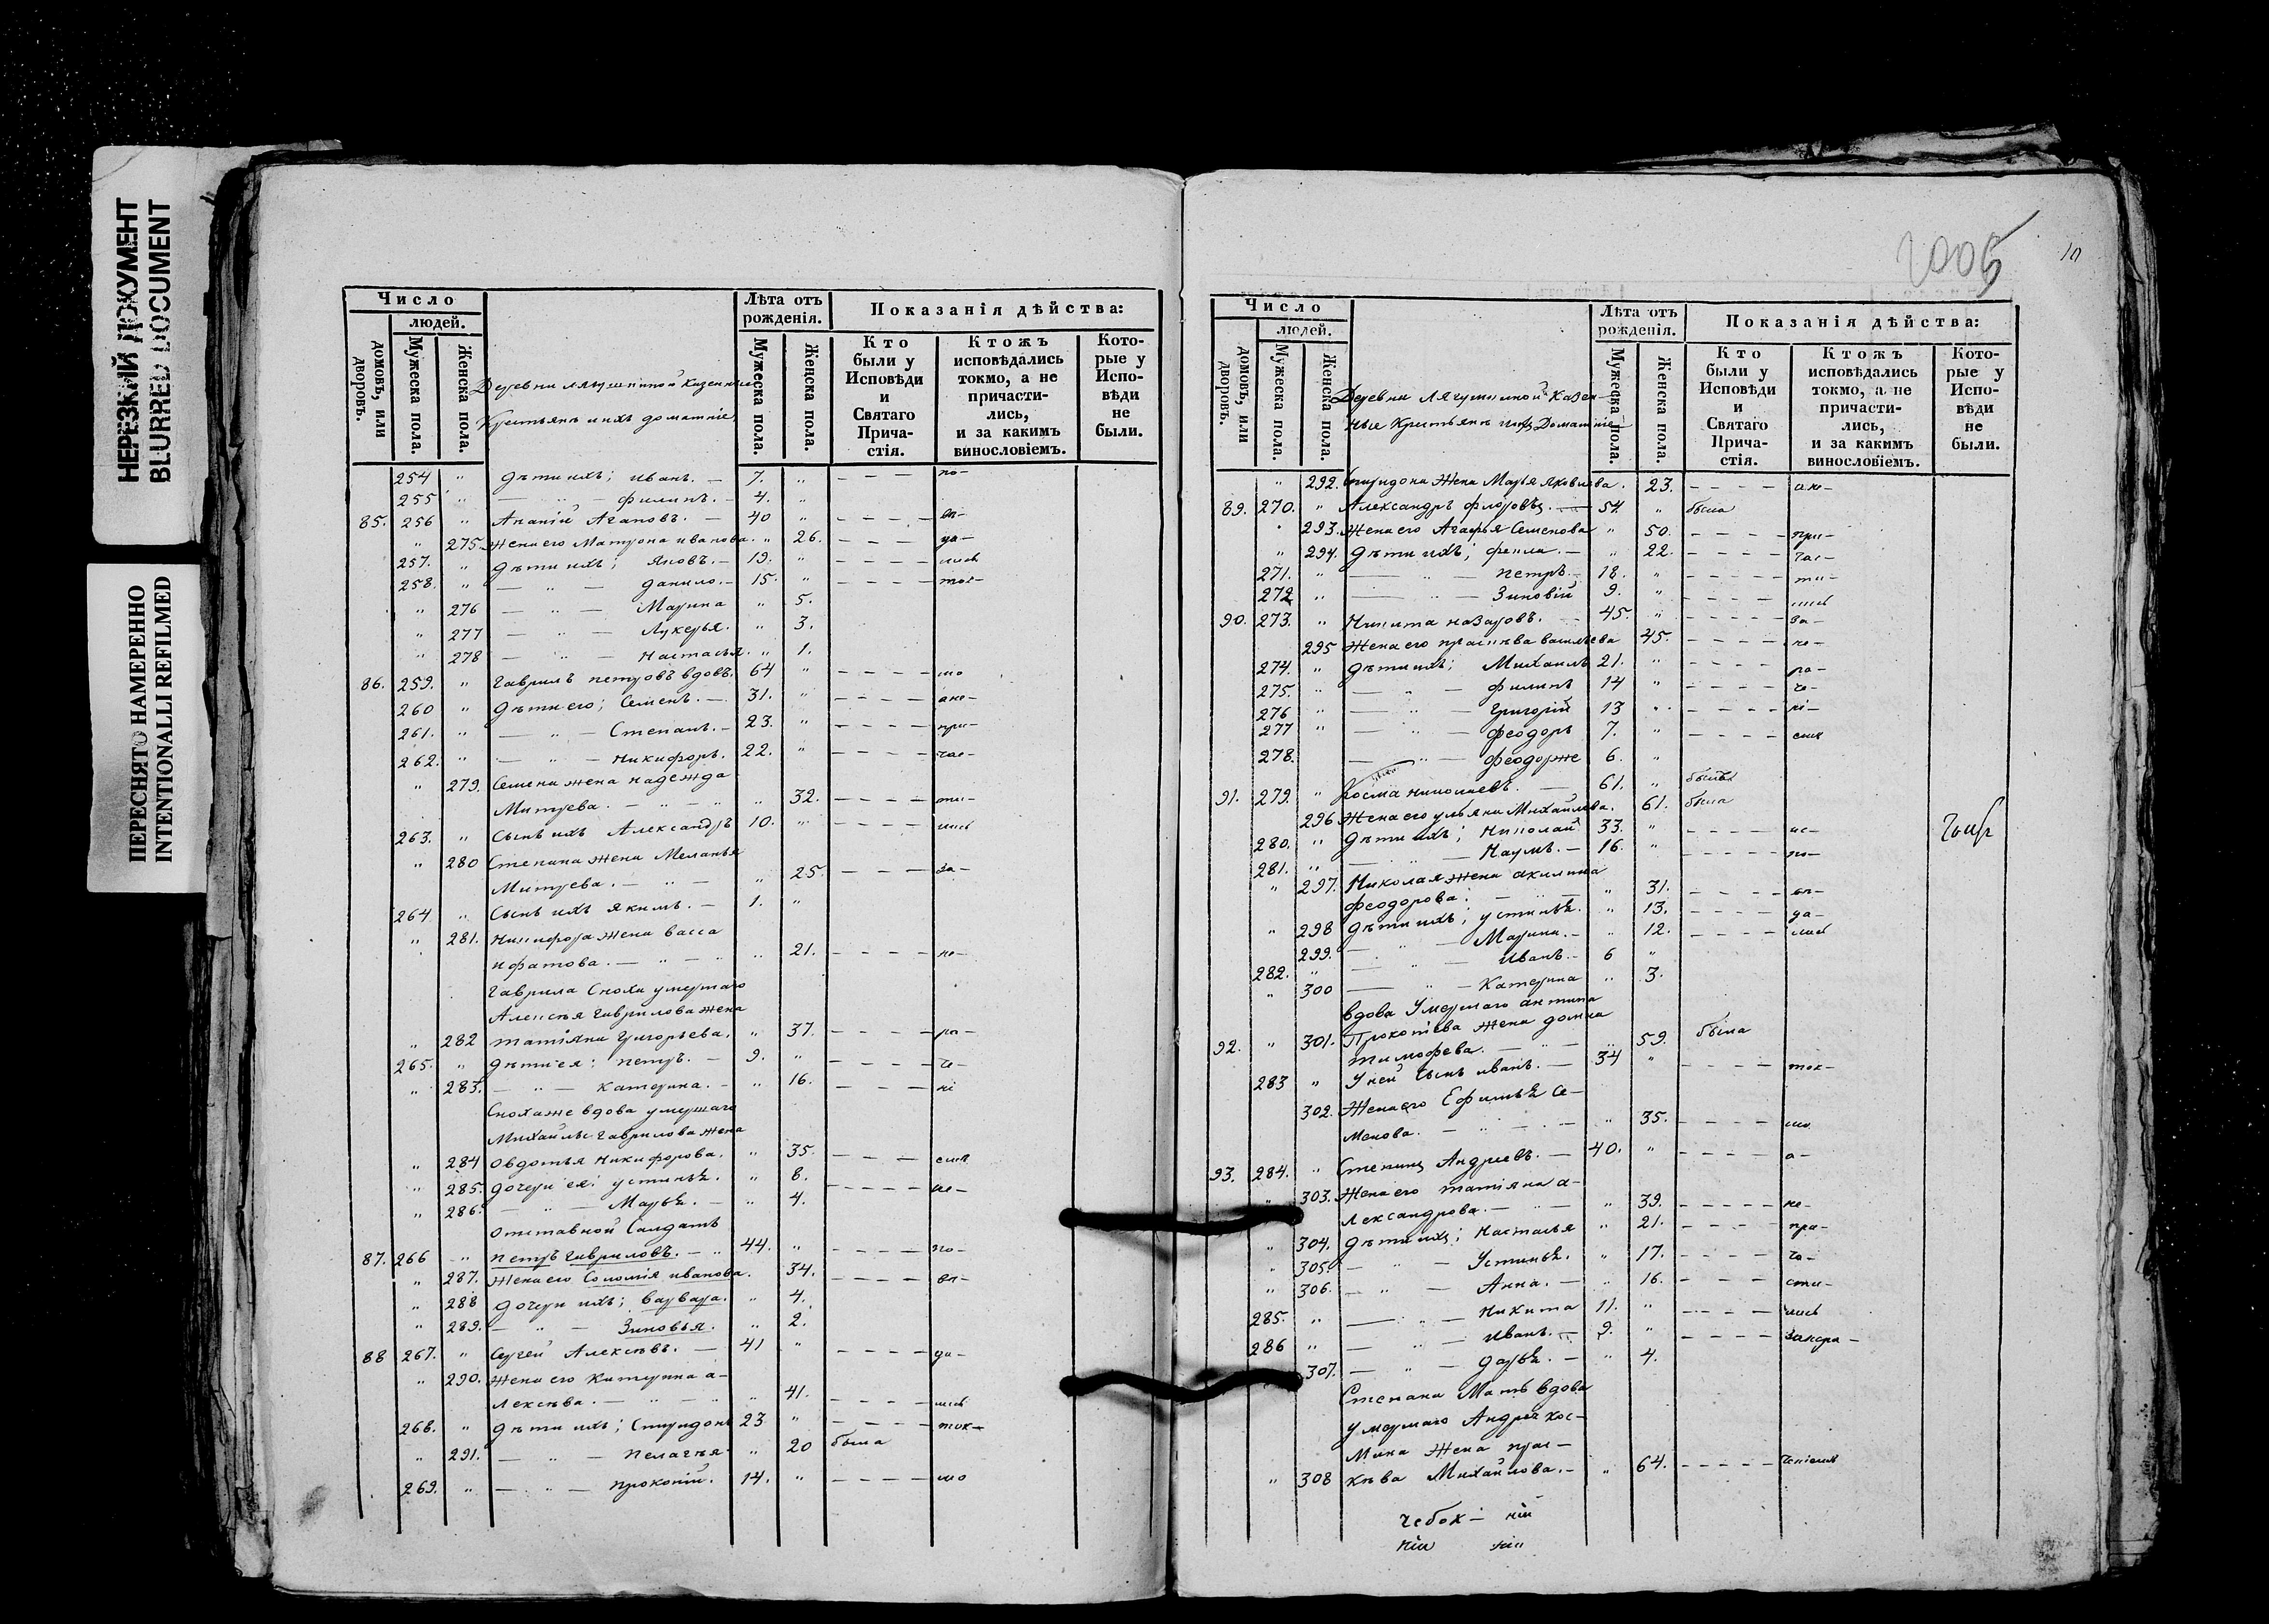 НЕРЕЗКИЙ ДОКУМЕНТ
BLURRED DOCUMENT
ПЕРЕСНЯТО НАМЕРЕННО
INTENTIONALLI REFILMED
Число
людей.
домовъ, или дворовъ.
Мужеска пола.
Женска пола.
Лѣта отъ рожденія.
Мужеска пола.
Женска пола.
Показанія дѣйства:
Кто были у Исповѣди и Святаго Прича-стія.
Ктожъ исповѣдались токмо, а не причасти-лись, и за какимъ винословіемъ.
Кото-рые у Испо-вѣди не были.
Деревни Лягушиной Казенные
Крестьянъ и ихъ домашніе
254 " дѣти ихъ; Иванъ. — 7. " — — по-
255 " — " — Филипъ. — 4. "
85. 256 " Ананій Агаповъ. — 40 " — — — — вѣ-
" 275. Жена его Матрона Иванова. " 26. — — — да-
257. " дѣти ихъ; Яковъ. — 19. " — — — — лись
258. " — " — Данило. — 15. " — — — — ток-
" 276 — " — Марина " 5.
" 277 — " — Лукерья. " 3.
" 278 — " — Настасья. " 1.
86. 259. " Гаврилъ Петровъ вдовъ. 64 " — — — — мо
260 " дѣти его; Семенъ. — 31. " — — — — ане-
261. " — " — Степанъ. — 23. " — — — — при-
262. " — " — Никифоръ. 22. " — — — — час-
" 279. Семена жена Надежда
Митрева. — " — " 32. — — — — ти-
263. " Сынъ ихъ Александръ 10. " лись
" 280 Степана жена Меланья
Митрева. — " — " 25. — — — — за-
264 " Сынъ ихъ Якимъ. — 1. "
" 281. Никифора жена Васса
Ифатова. — " — " 21. — — — — не-
Гаврила Сноха умершаго
Алексѣя Гаврилова жена
" 282 Татіяна Григорьева. " 37. — — — — ра-
265. " дѣти ея: Петръ. — 9. " — — — — че-
" 283. — " — Катерина. — " 16. — — — ні
Сноха же вдова умершаго
Михайлы Гаврилова жена
" 284 Овдотья Никифорова. " 35. — — — емъ
" 285. дочери ея: Устинья. " 8. — — — — ис-
" 286. — " — Марья. — " 4.
Отставной Салдатъ
87. 266 " Петръ Гавриловъ. — " 44. " — — — — по-
" 287. Жена его Соломія Иванова. 34. — — — — вѣ-
" 288 дочери ихъ; Варвара. " 4.
" 289. — " — Зиновья. " 2.
88 267. " Сергей Алексѣвъ. — 41 " — — — — да-
" 290. Жена его Катерина А-
лексѣва. — " — " 41. — — — — лись
268. " дѣти ихъ; Спиридонъ 23 " — — — — ток-
" 291. — " — Пелагѣя. " 20 была
269. " — " — Прокопій. 14. " — — — — мо
2005
10
Число
людей.
домовъ, или дворовъ.
Мужеска пола.
Женска пола.
Лѣта отъ рожденія.
Мужеска пола.
Женска пола.
Показанія дѣйства:
Кто были у Исповѣди и Святаго Прича-стія.
Ктожъ исповѣдались токмо, а не причасти-лись, и за какимъ винословіемъ.
Кото-рые у Испо-вѣди не были.
Деревни Лягушиной Казен-
ные Крестьянъ ихъ Домашніе
" 292. Спиридона Жена Марья Яковлева. 23. — — — — ане-
89. 270. " Александръ Флоровъ. — 54 " была
" 293. Жена его Агафья Семенова " 50. — — — — при-
" 294. дѣти ихъ; Фекла. — " 22. — — — — час-
271. " — " — Петръ. — 18. " — — — — ти-
272 " — " — Зиновій 9. " — — — — лись
90. 273. " Никита Назаровъ. — 45. " — — — — за-
295 Жена его Праскѣва Васильева 45. — — — — не-
274. " дѣти ихъ; Михаилъ 21. " — — — — ра-
275. " — " — Филипъ 14 " — — — — че-
276 " — " — Григорій 13 " — — — — ні-
277 " — " — Феодоръ 7. " — — — — емъ
278. — " — Феодорже 6. "
91. 279. " Косма Николаевъ. — 61. " былъ
296 Жена его Ульяна Михайлова. 61. была
280. " дѣти ихъ; Николай 33. " — — — — ис-
281. " — " — Наумъ. — 16. " — — — — по-
" 297. Николая жена Акилина
Феодорова. — " — " 31. — — — — вѣ-
" 298 дѣти ихъ; Устинья. " 13. — — — — да-
299. — " — Марина. — " 12. — — — — лись
282. " — " — Иванъ. — 6 "
" 300 — " — Катерина " 3.
вдова Умершаго Антипа
92. " 301. Прокопіева жена Домна
Тимофева. — " — " 59. была
283 " У ней Сынъ Иванъ. — 34 " — — — — ток-
302. Жена его Ефимья Се-
менова. — " — " 35. — — — — мо
93. 284. " Степанъ Андреевъ. — 40. " — — — — а-
" 303. Жена его Татіяна А-
лександрова. — " — " 39. — — — — не-
" 304. дѣти ихъ; Настасья " 21. — — — — при-
" 305. — " — Устинья. " 17. — — — — ча-
" 306. — " — Анна. — " 16. — — — — сти-
285. " — " — Никита 11. " — — — — лись
286 " — " — Иванъ. — 9. " — — — — занера-
307. — " — Дарья. — " 4.
Степана Мать вдова
умершаго Андрея Кос-
мина Жена прас-
" 308 кѣва Михайлова. — " 64. — — — — ченіемъ